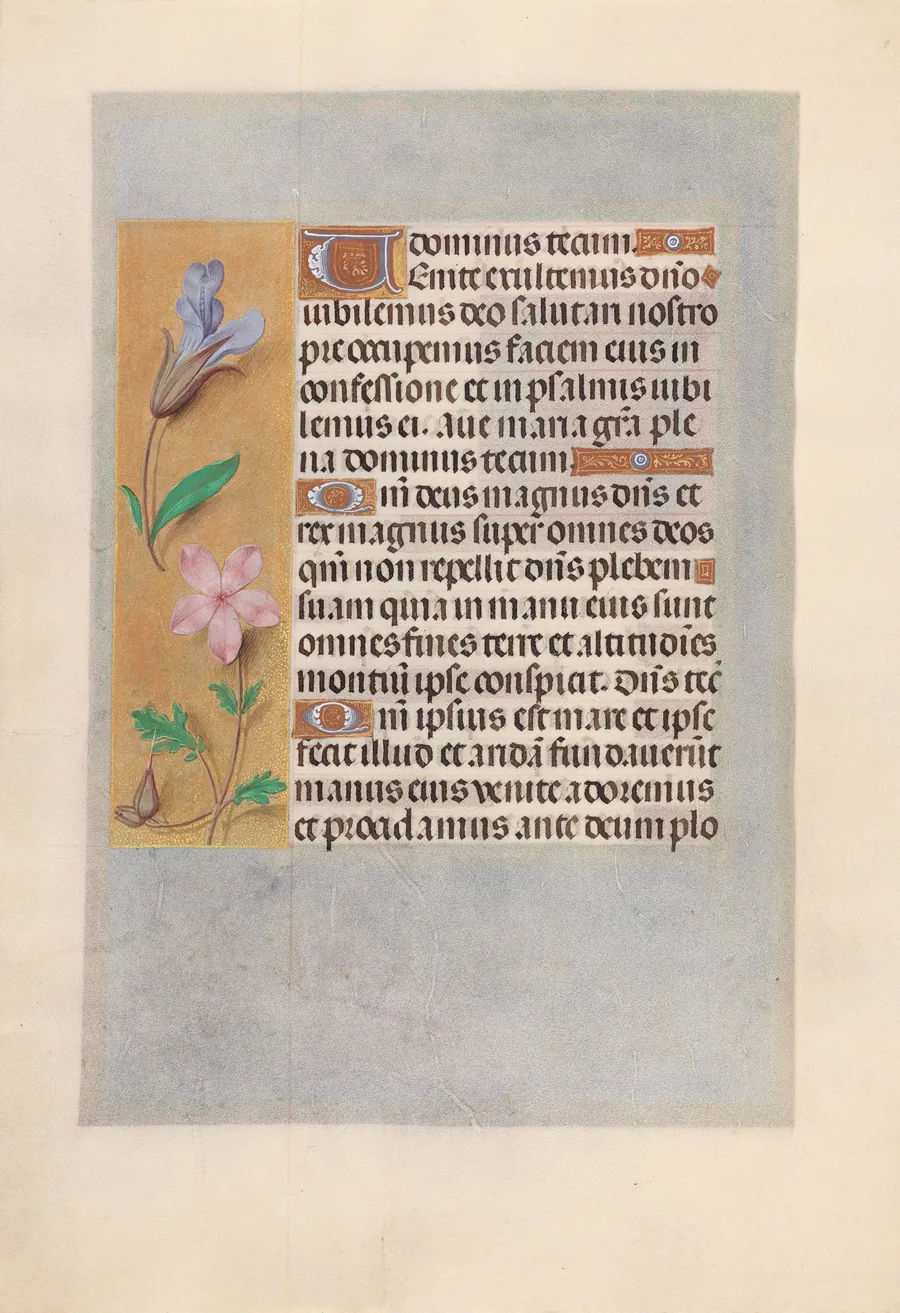 dominus tecum.
Venite exultemus dño
iubilemus deo salutari nostro
preoccupemus faciem eius in
confessione et in psalmis iubi
lemus ei. Aue maria gr̃a ple
na dominus tecum.
Qm̃ deus magnus dñs et
rex magnus super omnes deos
qm̃ non repellit dñs plebem
suam quia in manu eius sunt
omnes fines terre et altitudiēs
montiū ipse conspicit. Dñs tec̄
Qm̃ ipsius est mare et ipse
fecit illud et aridā fundauerūt
manus eius venite adoremus
et procidamus ante deum plo